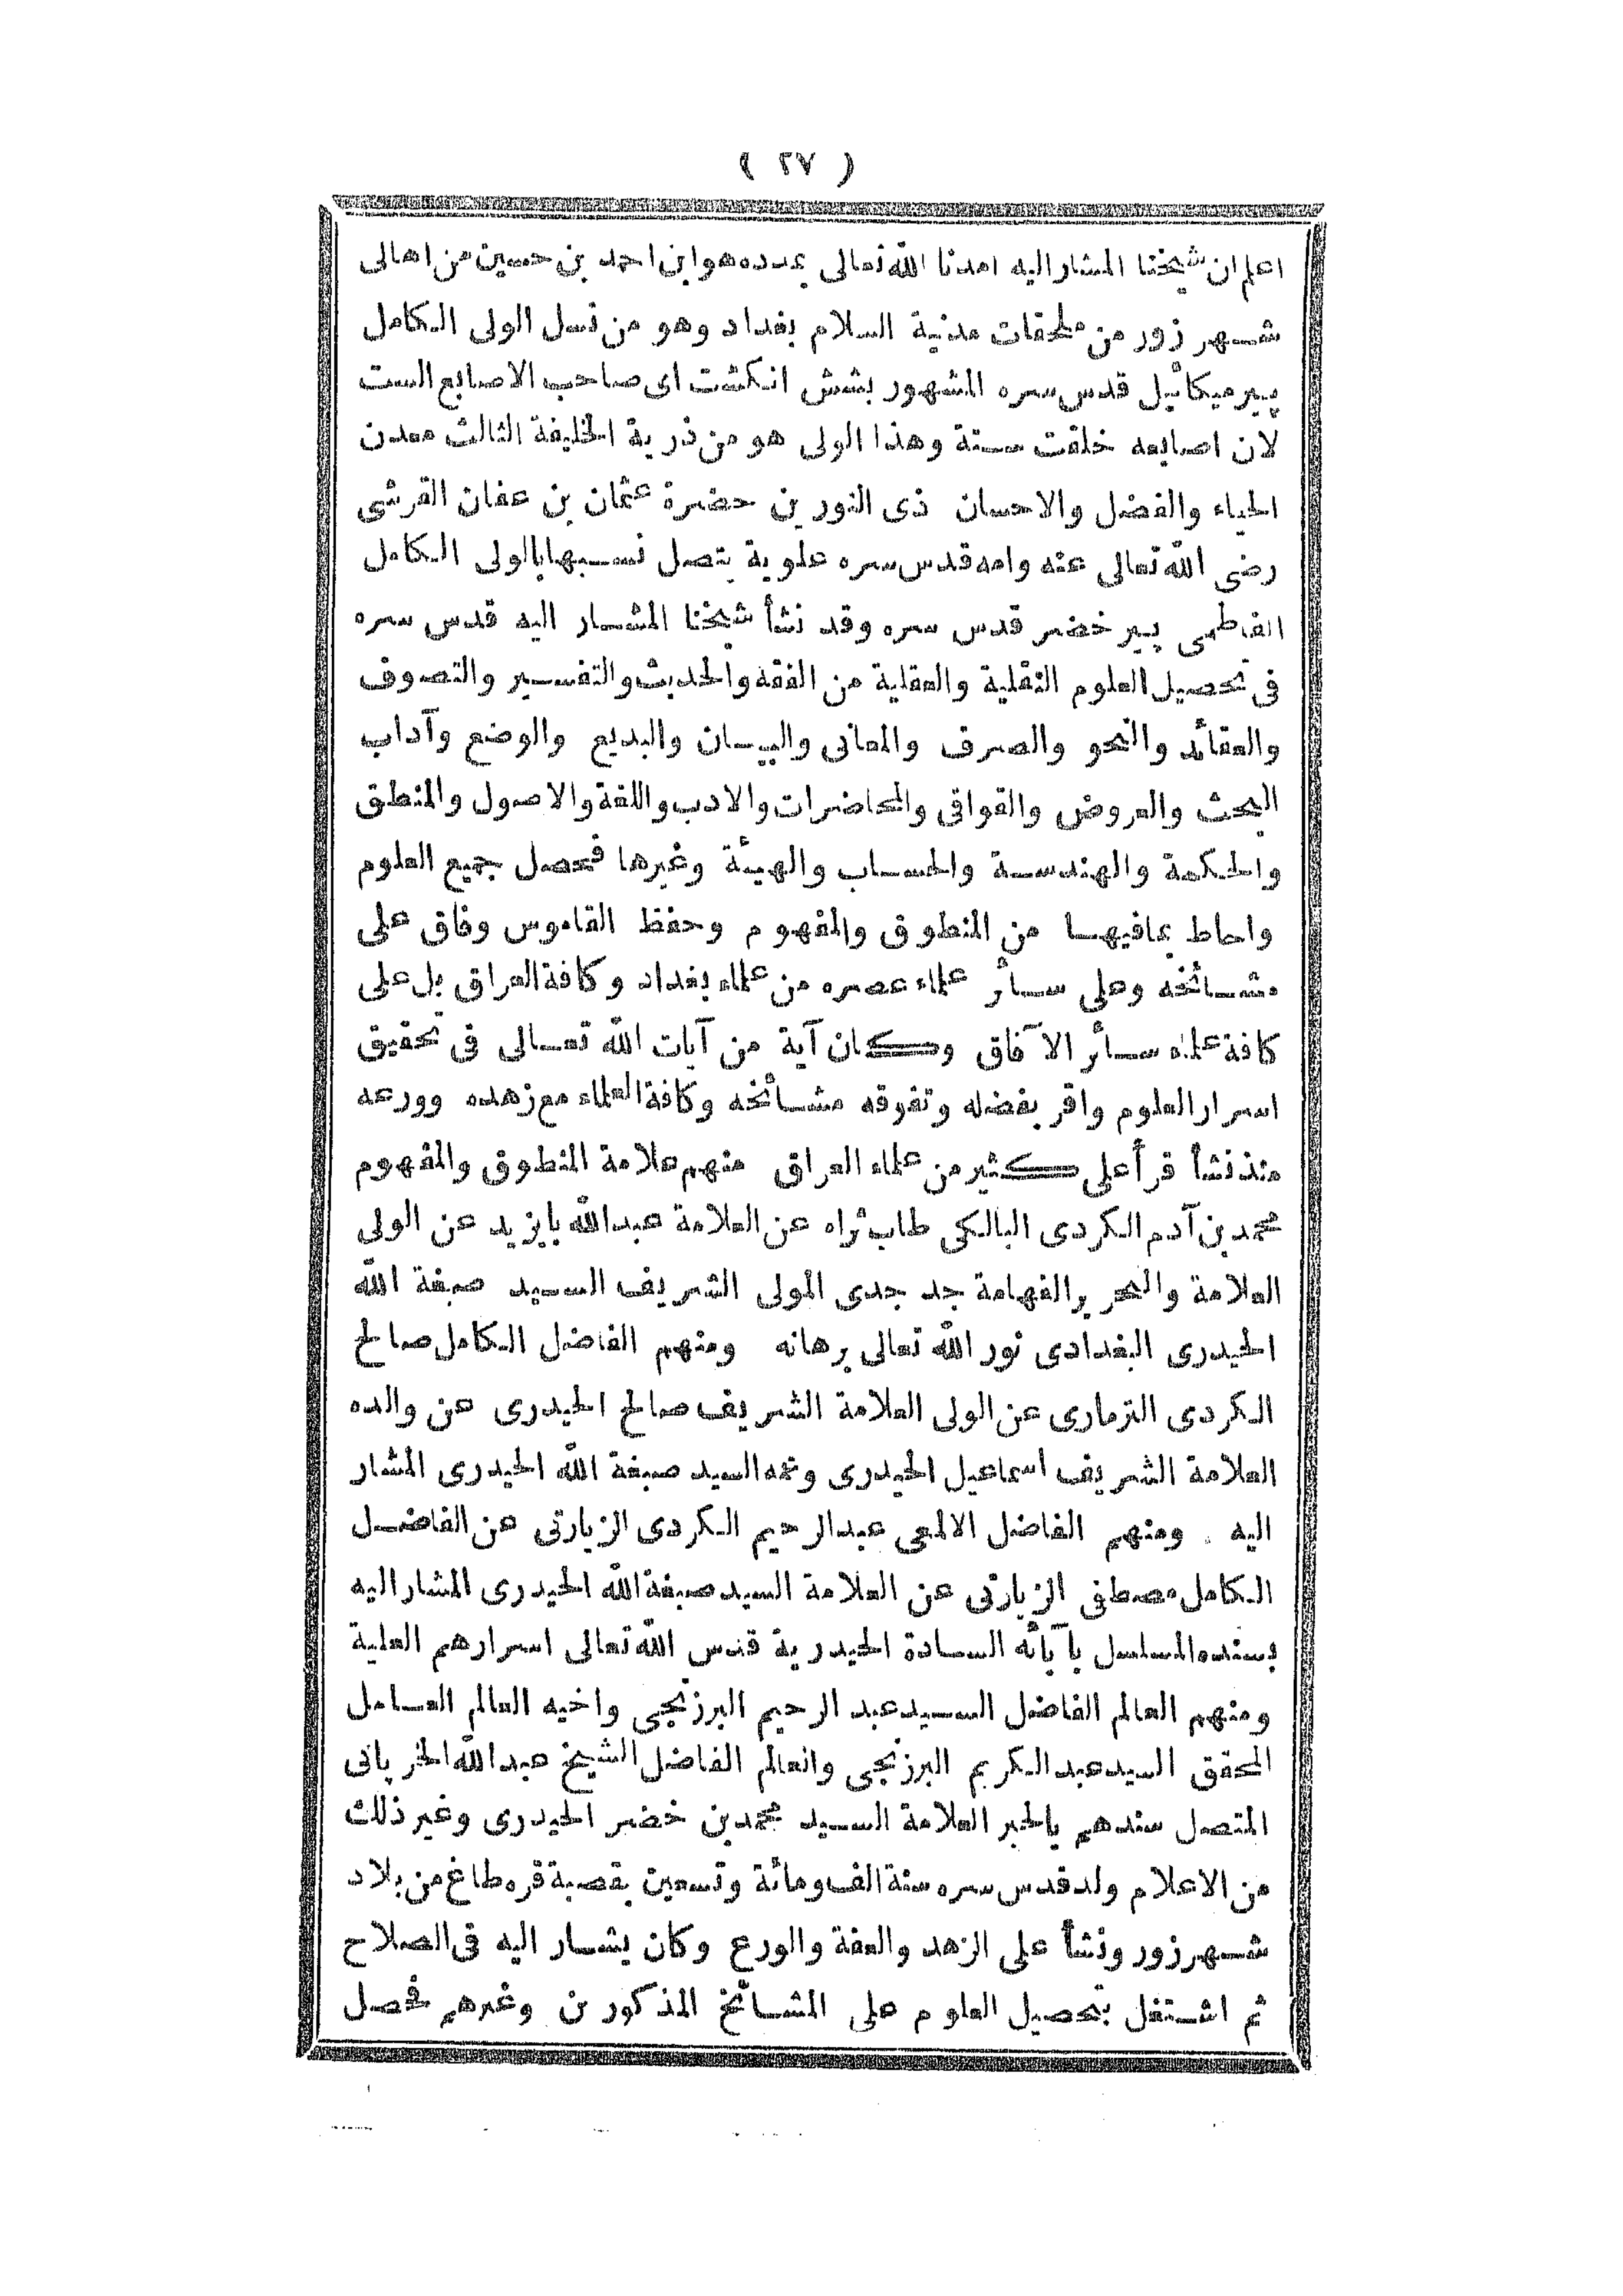 ( ٢٧ )
اعلم ان شيخنا المشار اليه امدنا الله تعالى بمدده هو ابن احمد بن حسين من اهالى
شهر زور من ملحقات مدنية السلام بغداد وهو من نسل الولى الكامل
پير ميكائيل قدس سره المشهور بشش انكشت اى صاحب الاصابع الست
لان اصابعه خلقت ستة وهذا الولى هو من ذرية الخليفة الثالث معدن
الحياء والفضل والاحسان ذى النورين حضرة عثمان بن عفان القرشى
رضى الله تعالى عنه وامه قدس سره علوية يتصل نسبها بالولى الكامل
الفاطمى پير خضر قدس سره وقد نشأ شيخنا المشار اليه قدس سره
فى تحصيل العلوم النقلية والعقلية من الفقه والحديث والتفسير والتصوف
والعقائد والنحو والصرف والمعانى والبيان والبديع والوضع وآداب
البحث والعروض والقوافى والمحاضرات والادب واللغة والاصول والمنطق
والحكمة والهندسة والحساب والهيئة وغيرها فحصل جميع العلوم
واحاط بمافيها من المنطوق والمفهوم وحفظ القاموس وفاق على
مشائخه وعلى سائر علماء عصره من علماء بغداد وكافة العراق بل على
كافة علماء سائر الآفاق وكان آية من آيات الله تعالى فى تحقيق
اسرار العلوم واقر بفضله وتفوقه مشائخه وكافة العلماء مع زهده وورعه
منذ نشأ قرأ على كثير من علماء العراق منهم علامة المنطوق والمفهوم
محمد بن آدم الكردى البالكى طاب ثراه عن العلامة عبدالله بايزيد عن الولى
العلامة والنحرير الفهامة جد جدى المولى الشريف السيد صبغة الله
الحيدرى البغدادى نور الله تعالى برهانه ومنهم الفاضل الكامل صالح
الكردى الترمارى عن الولى العلامة الشريف صالح الحيدرى عن والده
العلامة الشريف اسماعيل الحيدرى وعمه السيد صبغة الله الحيدرى المشار
اليه . ومنهم الفاضل الالمعى عبدالرحيم الكردى الزيارتى عن الفاضل
الكامل مصطفى الزيارتى عن العلامة السيد صبغة الله الحيدرى المشار اليه
بسنده المسلسل بآبائه السادة الحيدرية قدس الله تعالى اسرارهم العلية
ومنهم العالم الفاضل السيد عبد الرحيم البرزنجى واخيه العالم العامل
المحقق السيد عبد الكريم البرزنجى والعالم الفاضل الشيخ عبدالله الخرپانى
المتصل سندهم بالحبر العلامة السيد محمد بن خضر الحيدرى وغير ذلك
من الاعلام ولد قدس سره سنة الف ومائة وتسعين بقصبة قره طاغ من بلاد
شهرزور ونشأ على الزهد والعفة والورع وكان يشار اليه فى الصلاح
ثم اشتغل بتحصيل العلوم على المشائخ المذكورن وغيرهم فحصل